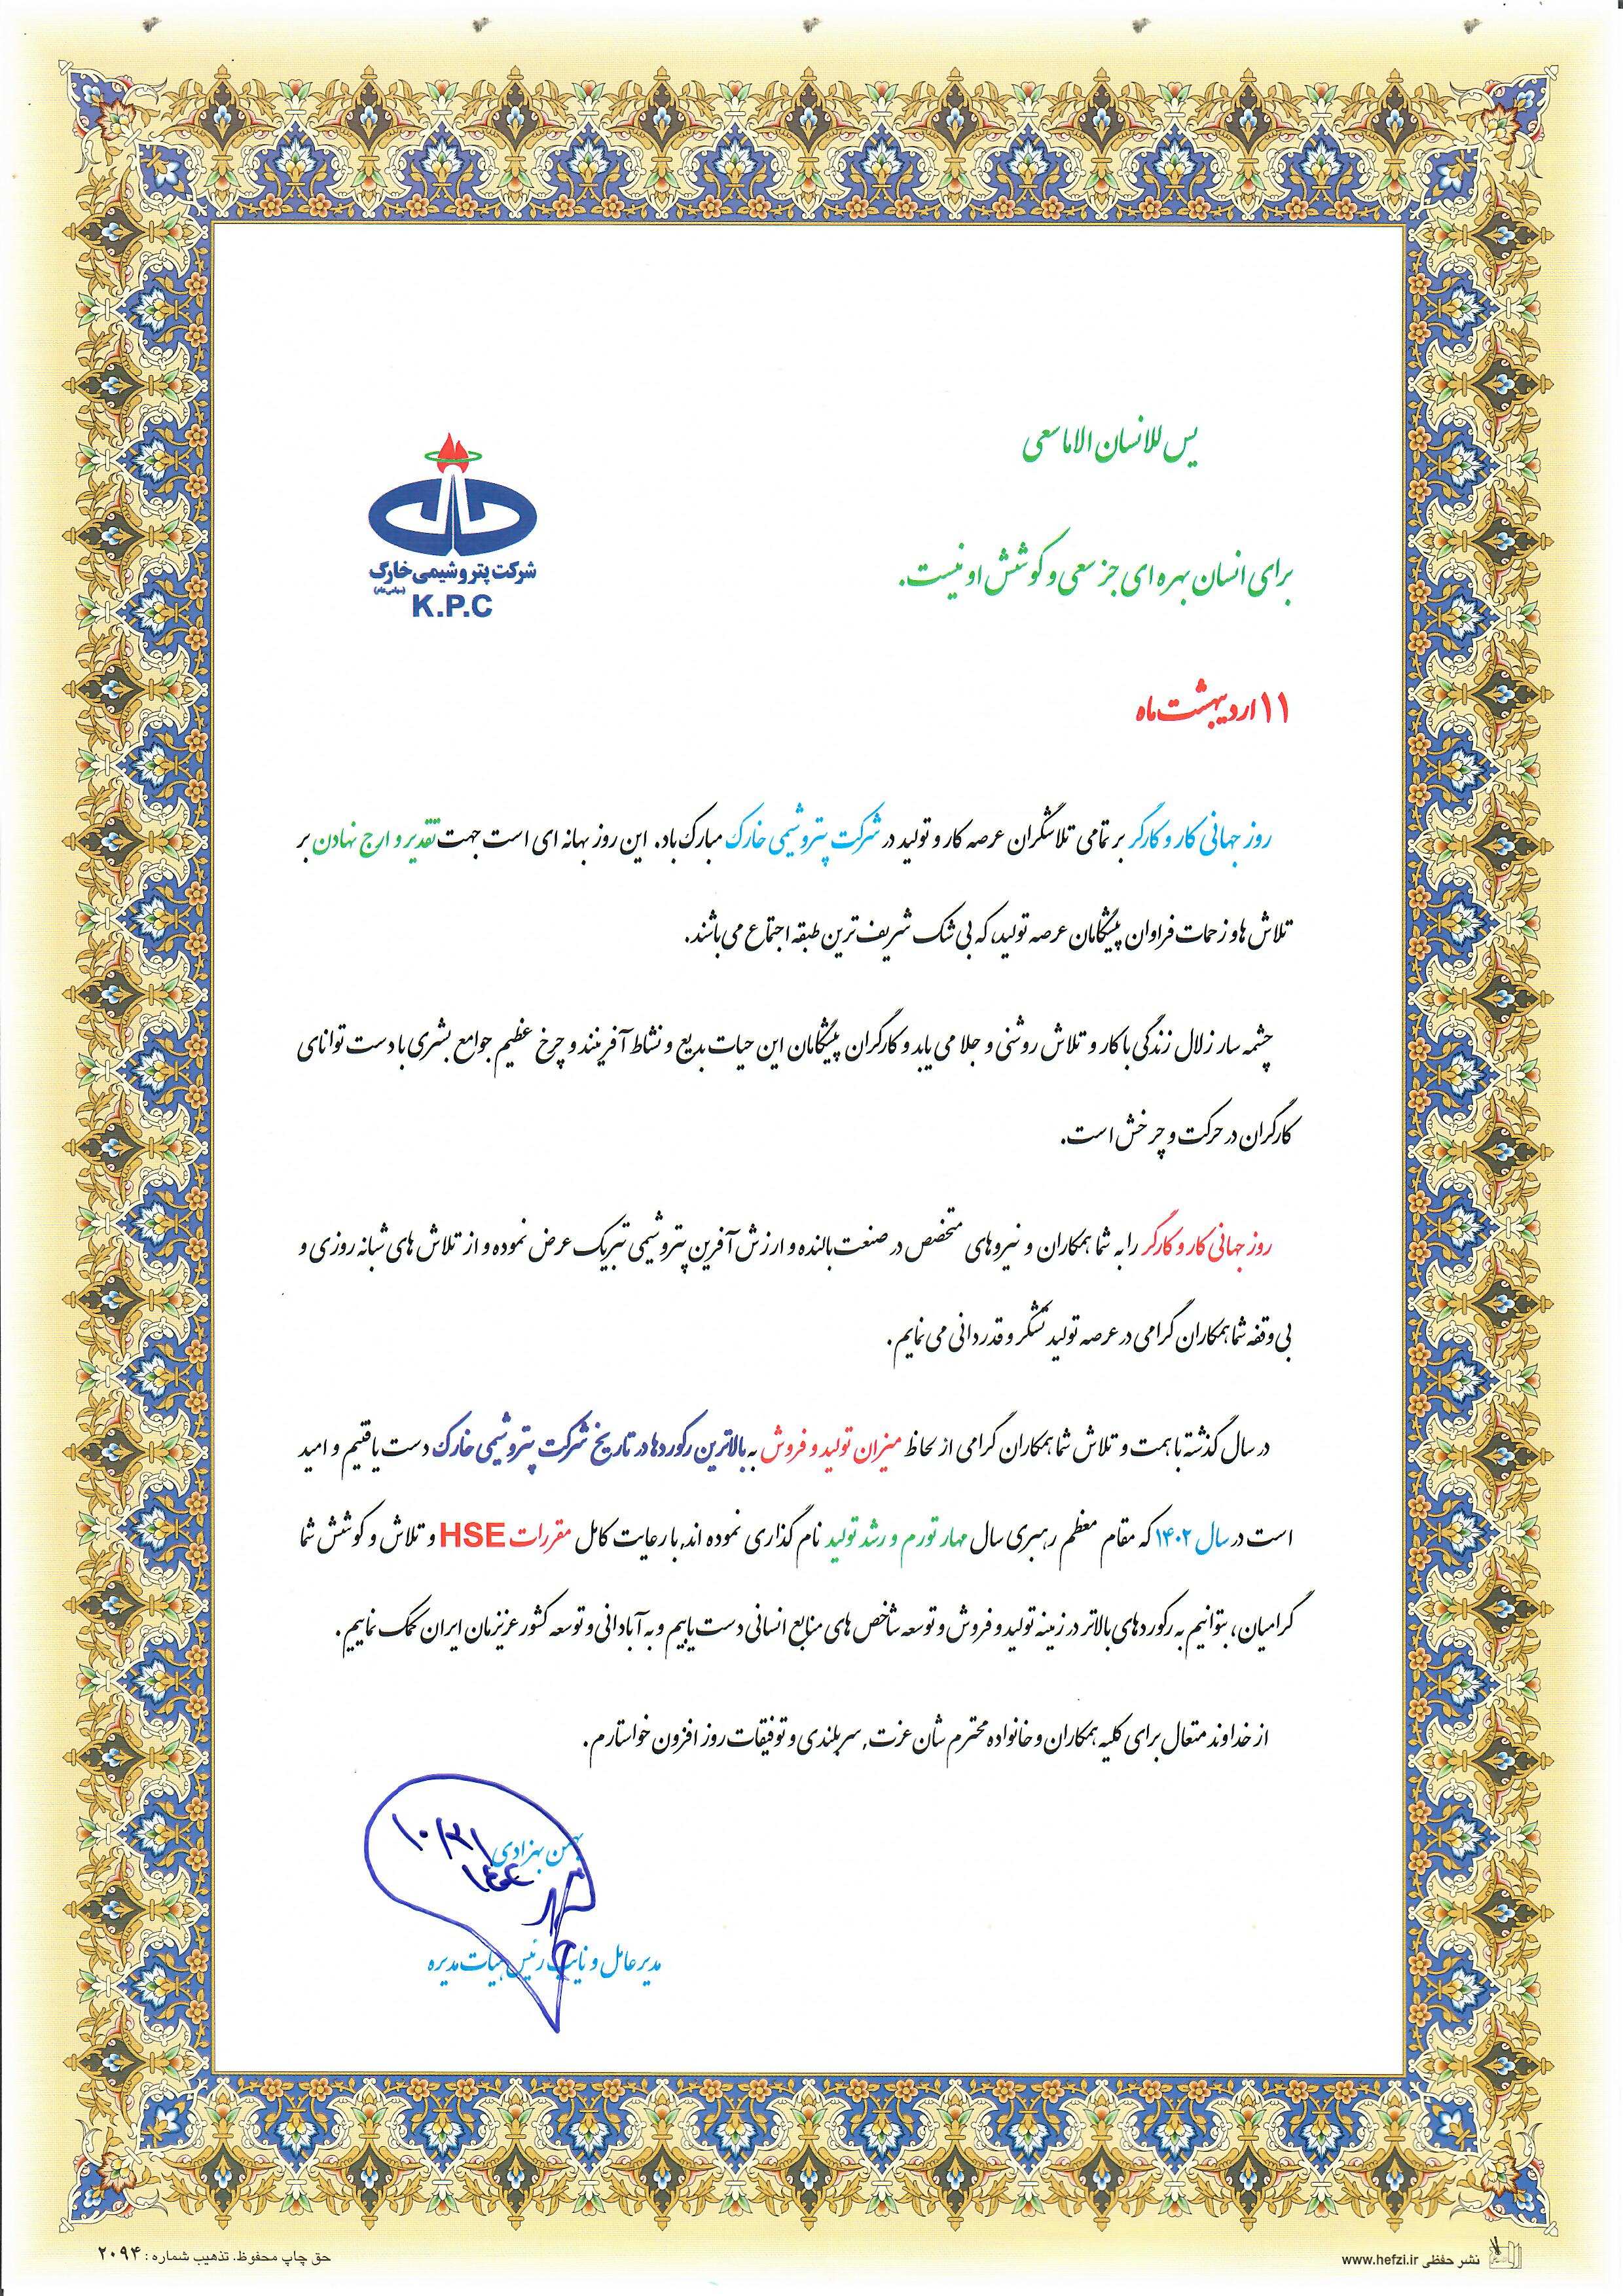 یس للانسان الا ما سعی
شرکت پتروشیمی خارک
(سهامی عام)
K.P.C
برای انسان بهره ای جز سعی و کوشش او نیست.
۱۱ اردیبهشت ماه
روز جهانی کار و کارگر بر تمامی تلاشگران عرصه کار و تولید در شرکت پتروشیمی خارک مبارک باد. این روز بهانه ای است جهت تقدیر و ارج نهادن بر
تلاش ها و زحمات فراوان پیشگامان عرصه تولید، که بی شک شریف ترین طبقه اجتماع می باشند.
چشمه سار زلال زندگی با کار و تلاش روشنی و جلا می یابد و کارگران پیشگامان این حیات بدیع و نشاط آفرینند و چرخ عظیم جوامع بشری با دست توانای
کارگران در حرکت و چرخش است.
روز جهانی کار و کارگر را به شما همکاران و نیروهای متخصص در صنعت بالنده و ارزش آفرین پتروشیمی تبریک عرض نموده و از تلاش های شبانه روزی و
بی وقفه شما همکاران گرامی در عرصه تولید تشکر و قدردانی می نمایم.
در سال گذشته با همت و تلاش شما همکاران گرامی از لحاظ میزان تولید و فروش به بالاترین رکوردها در تاریخ شرکت پتروشیمی خارک دست یافتیم و امید
است در سال ۱۴۰۲ که مقام معظم رهبری سال مهار تورم و رشد تولید نام گذاری نموده اند، با رعایت کامل مقررات HSE و تلاش و کوشش شما
گرامیان، بتوانیم به رکوردهای بالاتر در زمینه تولید و فروش و توسعه شاخص های منابع انسانی دست یابیم و به آبادانی و توسعه کشور عزیزمان ایران کمک نماییم.
از خداوند متعال برای کلیه همکاران و خانواده محترم شان عزت، سربلندی و توفیقات روز افزون خواستارم.
بهمن بهزادی
مدیر عامل و نایب رئیس هیات مدیره
حق چاپ محفوظ. تذهیب شماره: ۲۰۹۴
نشر حفظی www.hefzi.ir